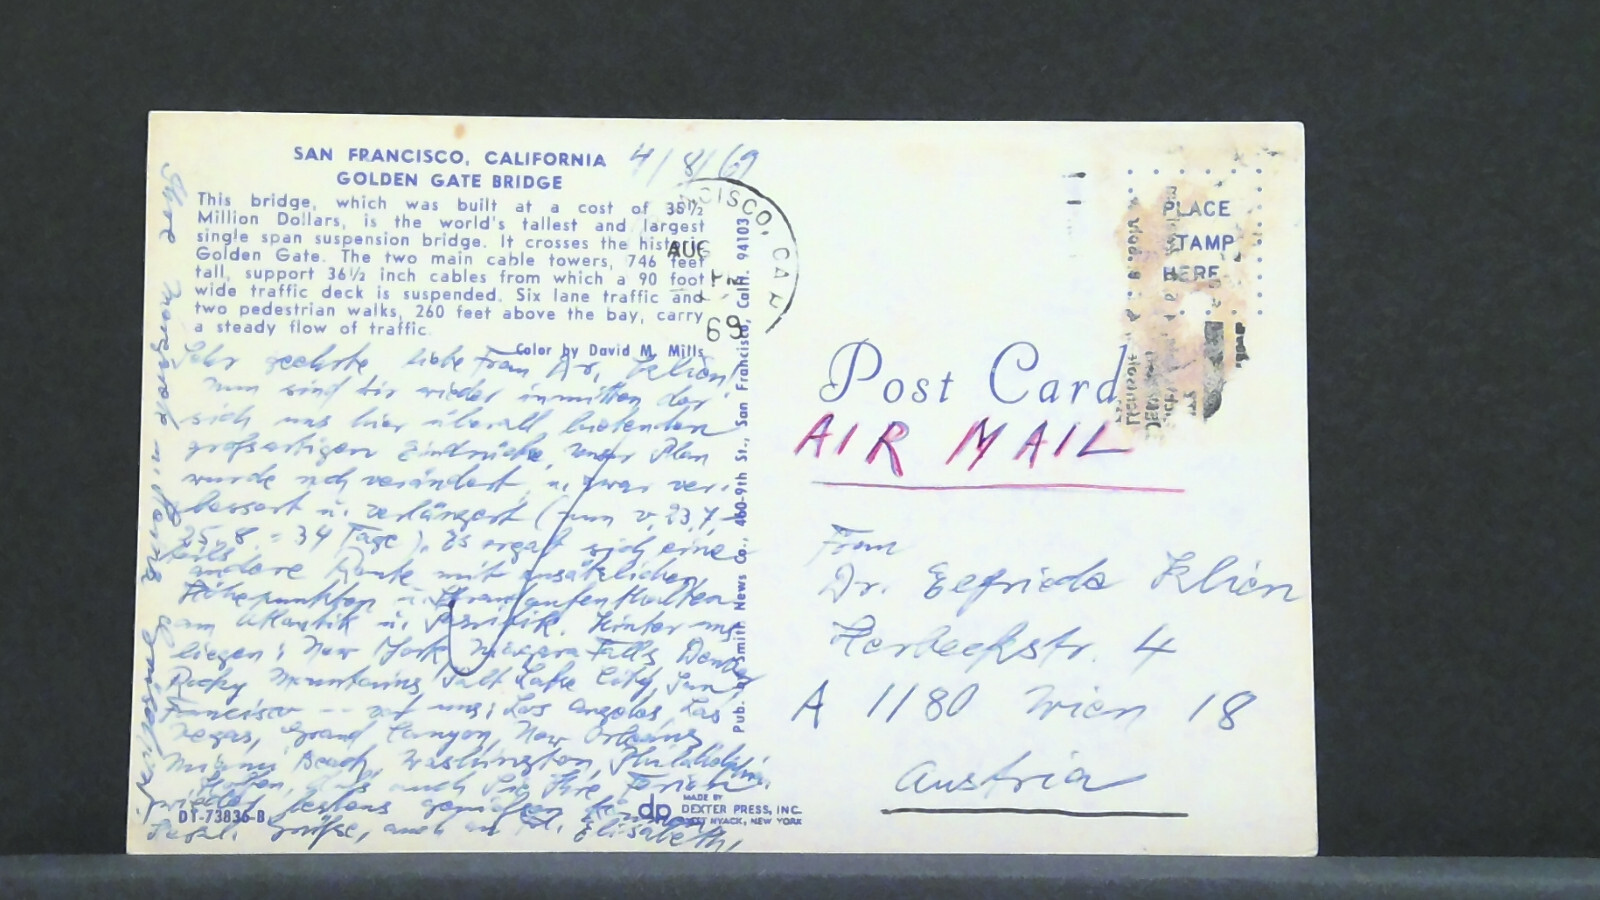 SAN FRANCISCO, CALIFORNIA
4/8/69
GOLDEN GATE BRIDGE
This bridge, which was built at a cost of 35½
Million Dollars, is the world's tallest and largest
single span suspension bridge. It crosses the historic
Golden Gate. The two main cable towers, 746 feet
tall, support 36½ inch cables from which a 90 foot
wide traffic deck is suspended. Six lane traffic and
two pedestrian walks, 260 feet above the bay, carry
a steady flow of traffic.
Color by David M. Mills
Sehr geehrte, liebe Frau Dr. Klien!
Nun sind wir wieder inmitten der
sich uns hier überall bietenden
großartigen Eindrücke, unser Plan
wurde noch verändert, u. zwar ver-
bessert u. verlängert (nun v. 23.7.-
25.8. = 34 Tage). Es ergab sich eine
teils andere Route mit zusätzlichen
Höhepunkten u. Strandaufenthalten
am Atlantik u. Pazifik. Hinter uns
liegen: New York, Niagara Falls, Denver
Rocky Mountains, Salt Lake City, San
Francisco -- vor uns: Los Angeles, Las
Vegas, Grand Canyon, New Orleans,
Miami Beach, Washington, Philadelphia.
auch Sie Ihre Ferien
wieder bestens genießen können
Herzl. Grüße, auch an Elisabeth,
DT-73836-B
Pub. by Smith News Co., 460-9th St., San Francisco, Calif. 94103
dp
MADE BY
DEXTER PRESS, INC.
WEST NYACK, NEW YORK
CISCO, CA
AUG
69
PLACE
STAMP
HERE
Post Card
AIR MAIL
Frau
Dr. Elfriede Klien
Herbeckstr. 4
A 1180 Wien 18
Austria